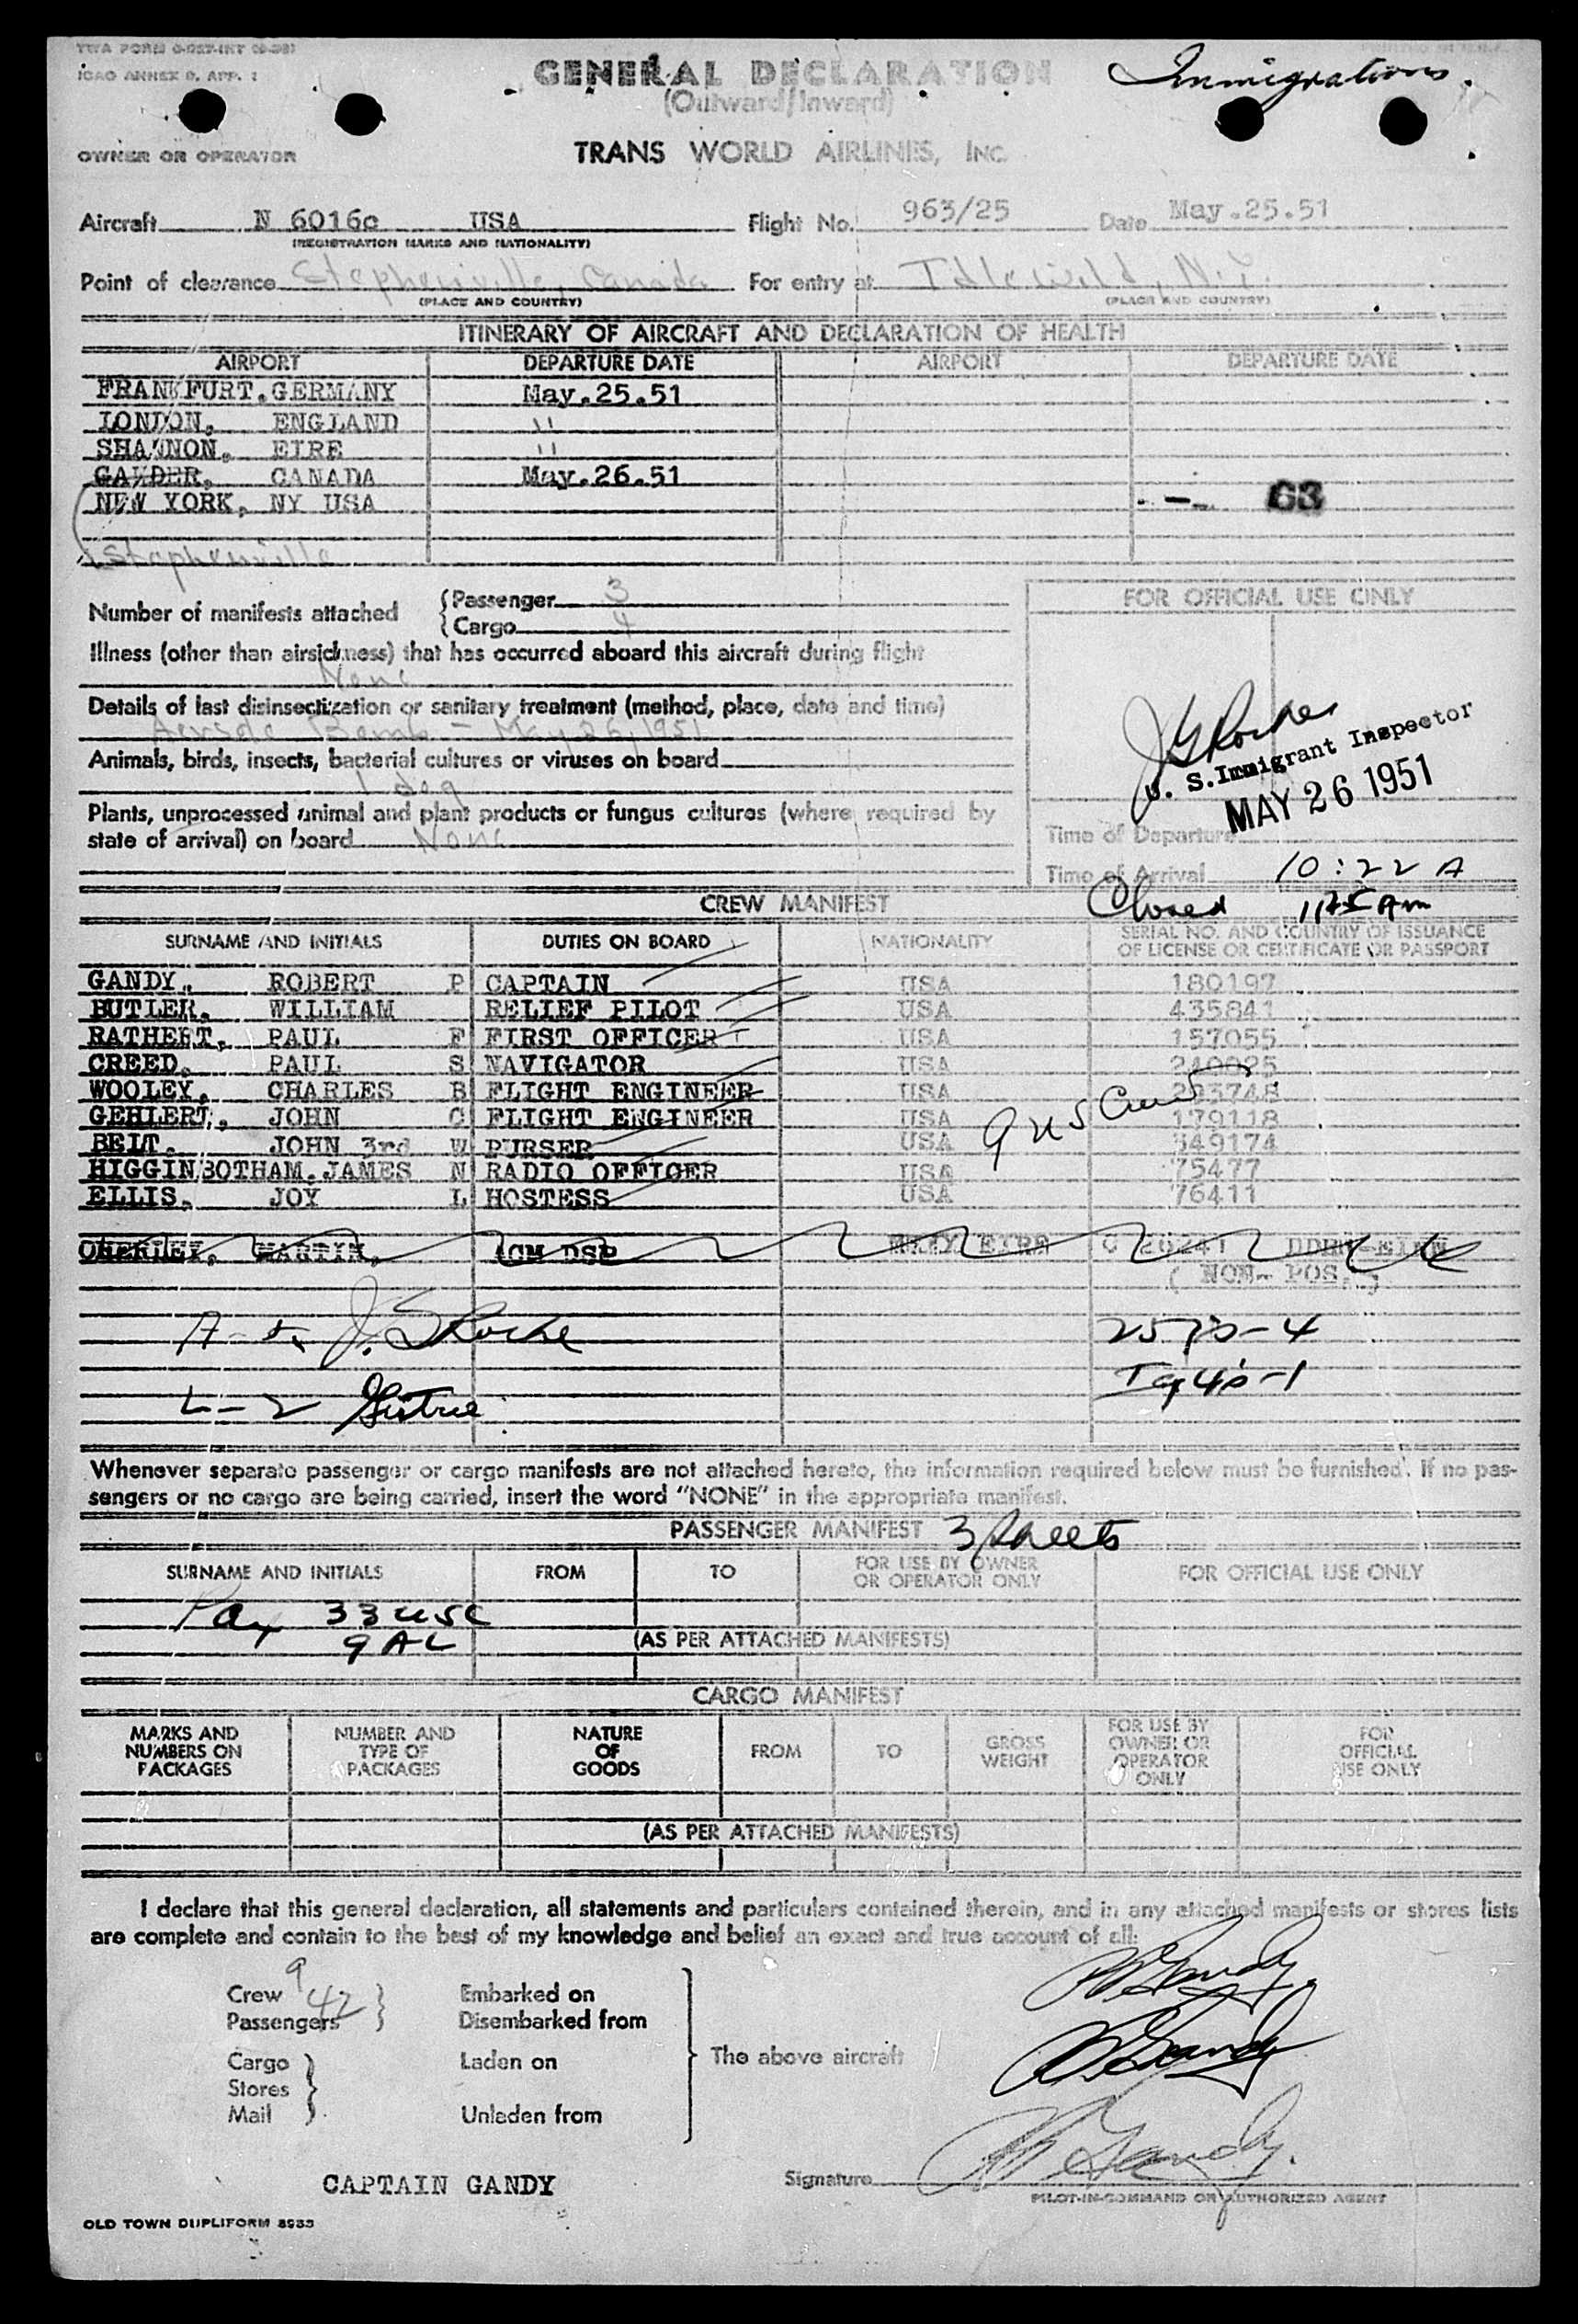 TWA FORM
ICAO ANNEX 9, APP. 1
GENERAL DECLARATION
(Outward/Inward)
Immigrations.
OWNER OR OPERATOR
TRANS WORLD AIRLINES, INC.
Aircraft N 6016c USA Flight No. 963/25 Date May.25.51
(REGISTRATION MARKS AND NATIONALITY)
Point of clearance Stephenville, Canada For entry at Idlewild, N.Y.
(PLACE AND COUNTRY) (PLACE AND COUNTRY)
ITINERARY OF AIRCRAFT AND DECLARATION OF HEALTH
AIRPORT DEPARTURE DATE AIRPORT DEPARTURE DATE
FRANKFURT.GERMANY May.25.51
LONDON, ENGLAND "
SHANNON, EIRE "
GANDER, CANADA May.26.51
NEW YORK, NY USA 63
Stephenville
Number of manifests attached
Passenger 3
Cargo 4
FOR OFFICIAL USE ONLY
Illness (other than airsickness) that has occurred aboard this aircraft during flight
None
Details of last disinsectization or sanitary treatment (method, place, date and time)
Bomb - May 26, 1951
Animals, birds, insects, bacterial cultures or viruses on board
1 dog
Plants, unprocessed animal and plant products or fungus cultures (where required by
state of arrival) on board None
J S Roche
U. S. Immigrant Inspector
MAY 26 1951
Time of Departure
Time of Arrival 10:22 A
Closed
CREW MANIFEST
SURNAME AND INITIALS DUTIES ON BOARD NATIONALITY SERIAL NO. AND COUNTRY OF ISSUANCE
OF LICENSE OR CERTIFICATE OR PASSPORT
GANDY, ROBERT P CAPTAIN USA 180197
BUTLER, WILLIAM RELIEF PILOT USA 435841
RATHERT, PAUL F FIRST OFFICER USA 157055
CREED, PAUL S NAVIGATOR USA
WOOLEY, CHARLES B FLIGHT ENGINEER USA
GEHLERT, JOHN C FLIGHT ENGINEER USA 179118
9 US
BELT, JOHN 3rd W PURSER USA 549174
HIGGINBOTHAM, JAMES N RADIO OFFICER USA 75477
ELLIS, JOY L HOSTESS USA 76411
MARTIN, ACM DSP EIRE
( NON- POS. )
J. S Roche
L-2
Whenever separate passenger or cargo manifests are not attached hereto, the information required below must be furnished. If no pas-
sengers or no cargo are being carried, insert the word "NONE" in the appropriate manifest.
PASSENGER MANIFEST 3 sheets
SURNAME AND INITIALS FROM TO FOR USE BY OWNER
OR OPERATOR ONLY FOR OFFICIAL USE ONLY
Pax 33 USC
9 AL
(AS PER ATTACHED MANIFESTS)
CARGO MANIFEST
MARKS AND
NUMBERS ON
PACKAGES
NUMBER AND
TYPE OF
PACKAGES
NATURE
OF
GOODS
FROM
TO
GROSS
WEIGHT
FOR USE BY
OWNER OR
OPERATOR
ONLY
FOR
OFFICIAL
USE ONLY
(AS PER ATTACHED MANIFESTS)
I declare that this general declaration, all statements and particulars contained therein, and in any attached manifests or stores lists
are complete and contain to the best of my knowledge and belief an exact and true account of all:
Crew 9
Passengers 42
Embarked on
Disembarked from
Cargo
Stores
Mail
Laden on
Unladen from
The above aircraft
RP Gandy
RP Gandy
CAPTAIN GANDY
Signature RP Gandy.
PILOT-IN-COMMAND OR AUTHORIZED AGENT
OLD TOWN DUPLIFORM 8933